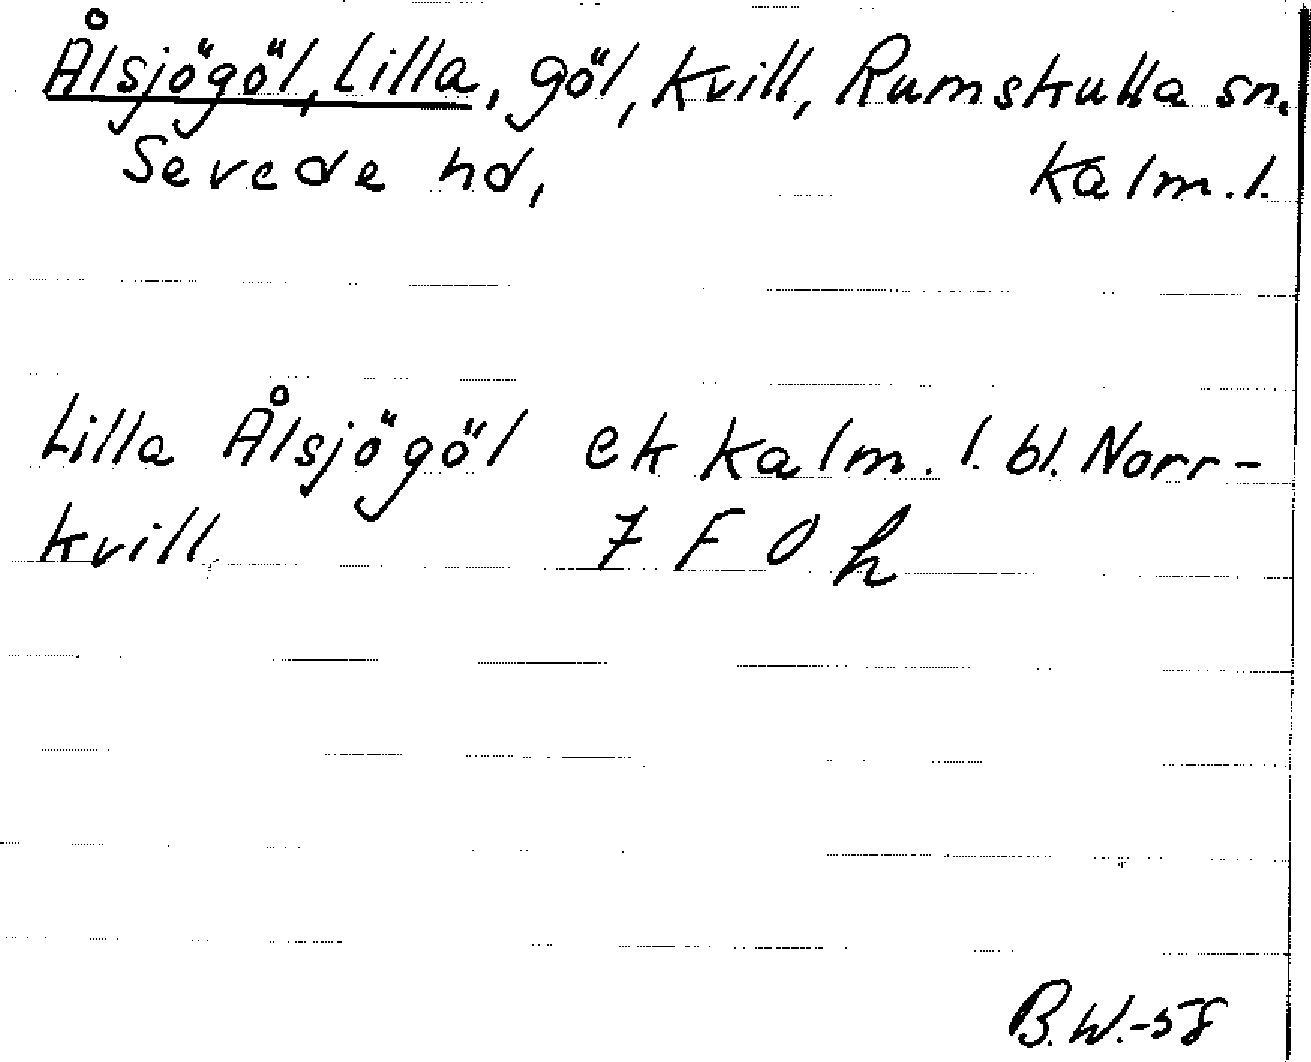 Ålsjögöl, Lilla, göl, Kvill, Rumskulla sn.
Sevede hd, Kalm. l.
Lilla Ålsjögöl ek Kalm. l. bl. Norr-
kvill 7 F 0 h
B.W.-58